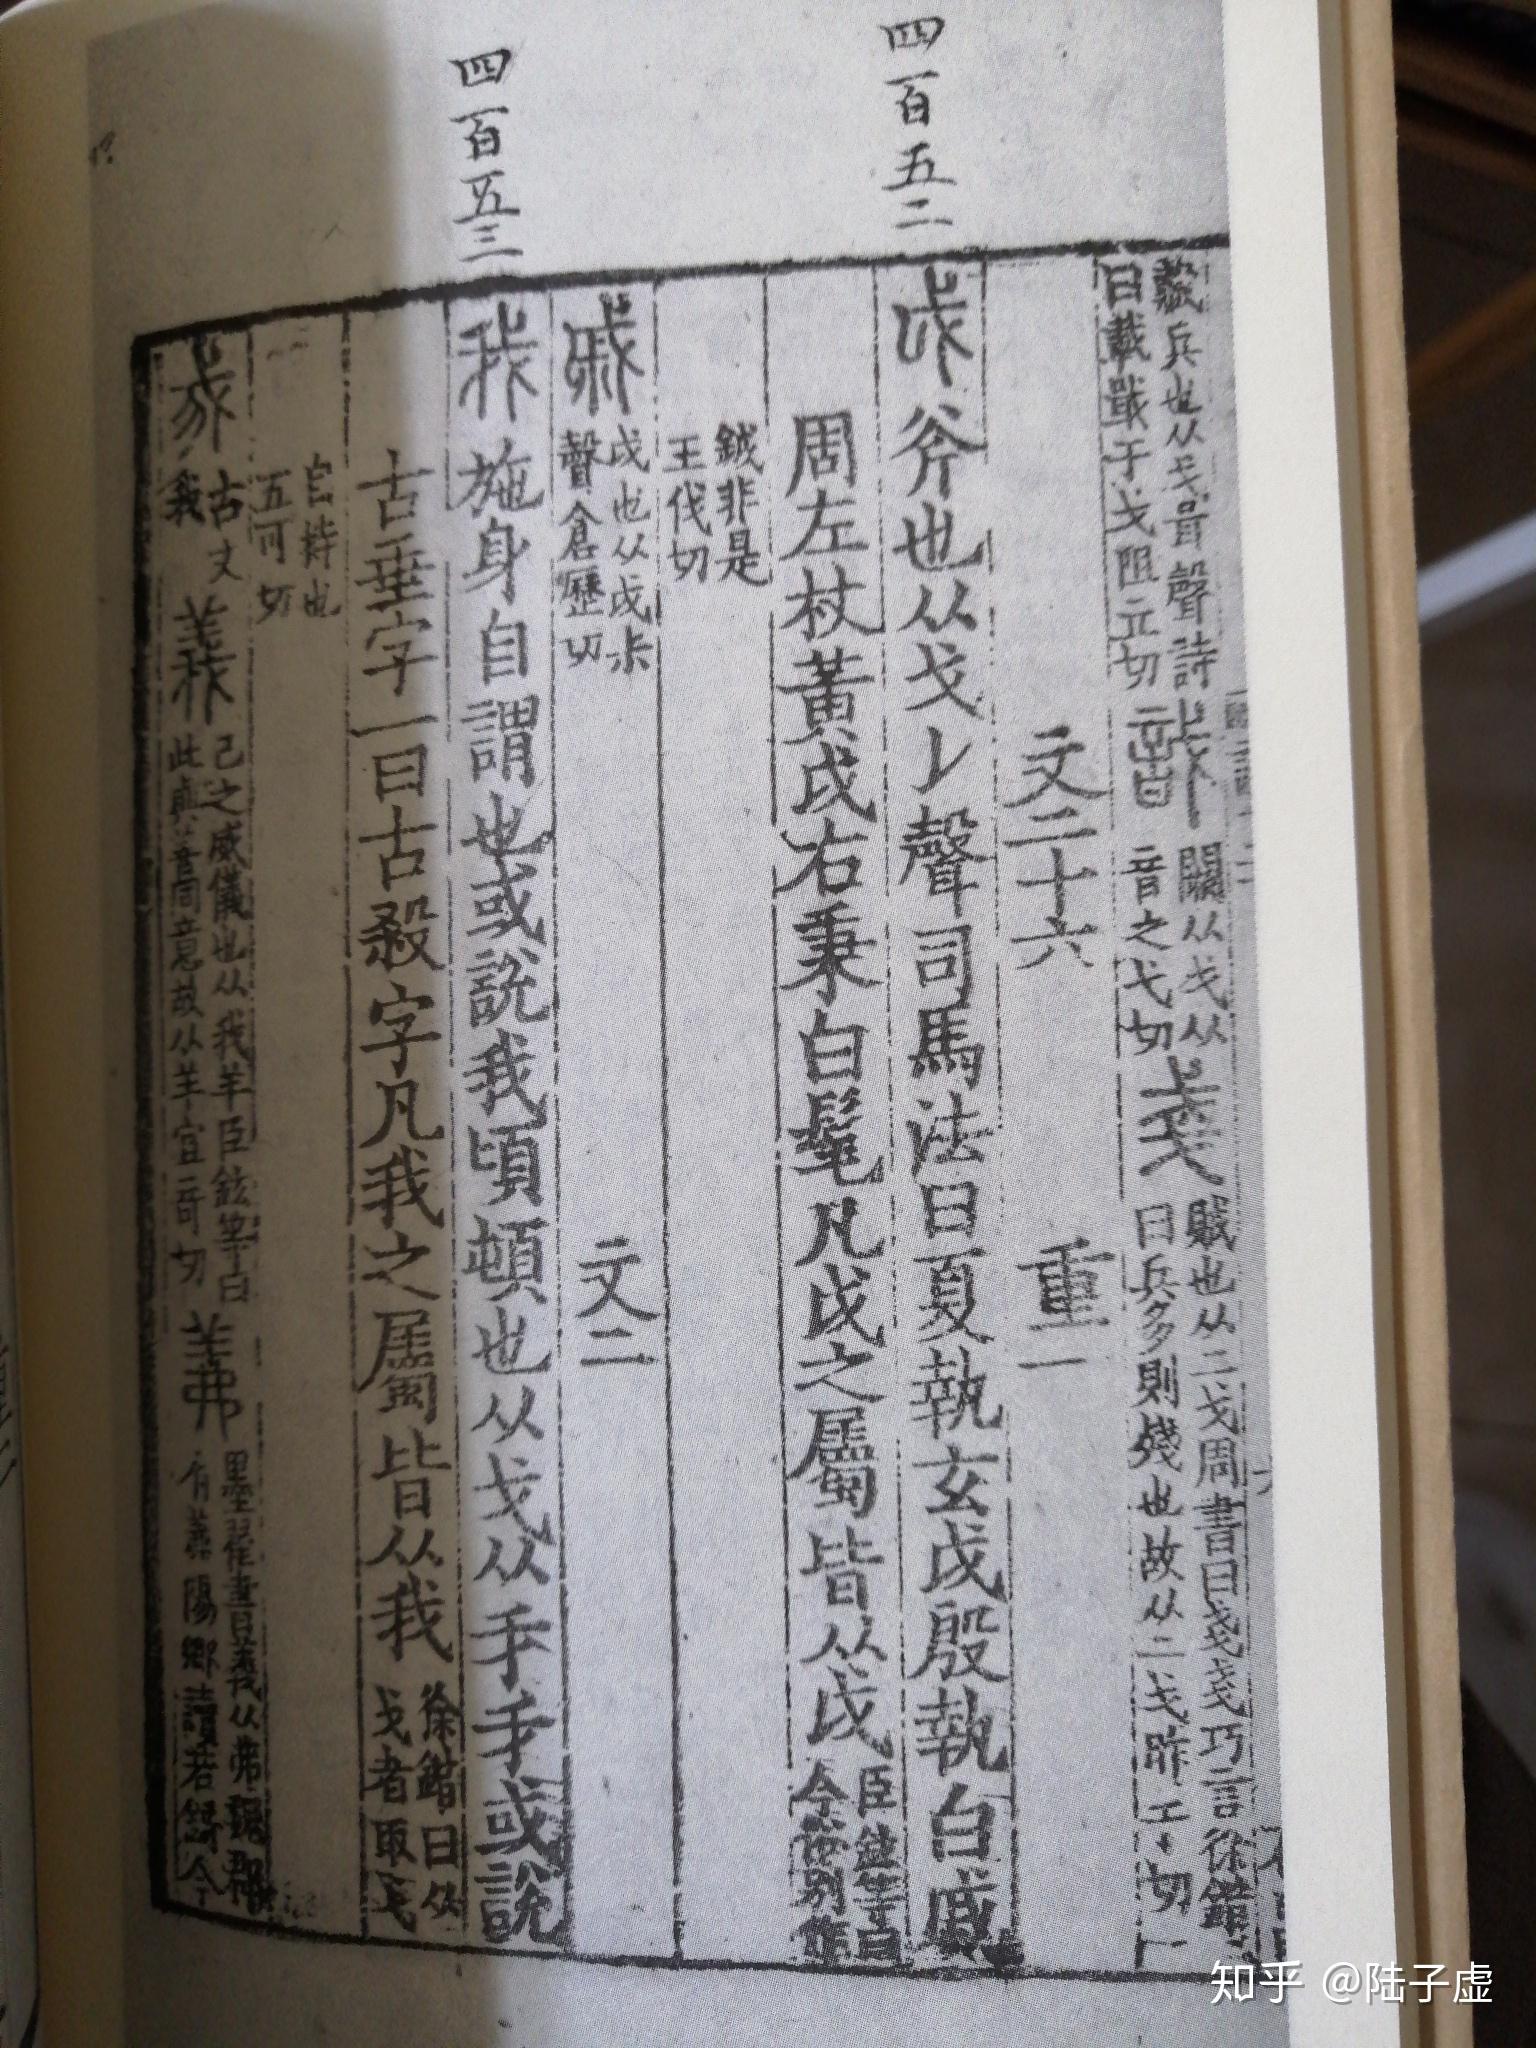 四百五二
四百五三
藏兵也从戈咠聲詩
曰載戢干戈阻立切
闕从戈从
音之弋切
賊也从二戈周書曰戔戔巧言徐鍇
曰兵多則殘也故从二戈昨干切
文二十六 重一
戉 斧也从戈𠄌聲司馬法曰夏執玄戉殷執白戚
周左杖黃戉右秉白髦凡戉之屬皆从戉
臣鉉等曰
今俗別作
鉞非是
王伐切
戚
戉也从戉尗
聲倉歷切
文二
我 施身自謂也或說我頃頓也从戈从手手或說
古垂字一曰古殺字凡我之屬皆从我
徐鍇曰从
戈者取戈
自持也
五可切
古文
我
義
己之威儀也从我羊臣鉉等曰
此與善同意故从羊宜奇切
羛
墨翟書義从弗魏郡
有羛陽鄉讀若錡今
知乎 @陆子虚